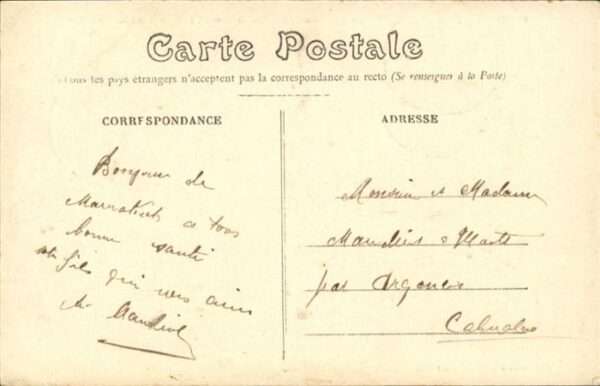 Carte Postale
tous les pays étrangers n'acceptent pas la correspondance au recto (Se renseigner à la Poste)
CORRESPONDANCE
ADRESSE
Bonjour de
a tous
bonne santé
fils qui vous aime
Monsieur et Madame
par Argences
Calvados